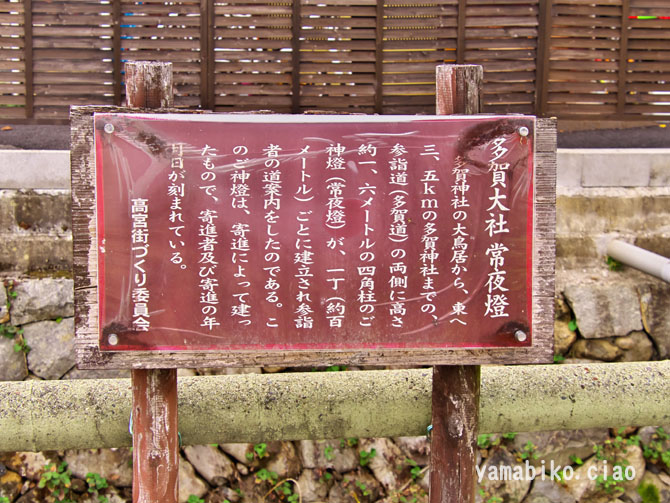 多賀大社 常夜燈
多賀神社の大鳥居から、東へ
三、五kmの多賀神社までの、
参詣道(多賀道)の両側に高さ
約一、六メートルの四角柱のご
神燈(常夜燈)が、一丁(約百
メートル)ごとに建立され参詣
者の道案内をしたのである。こ
のご神燈は、寄進によって建っ
たもので、寄進者及び寄進の年
月日が刻まれている。
高宮街づくり委員会
yamabiko.ciao